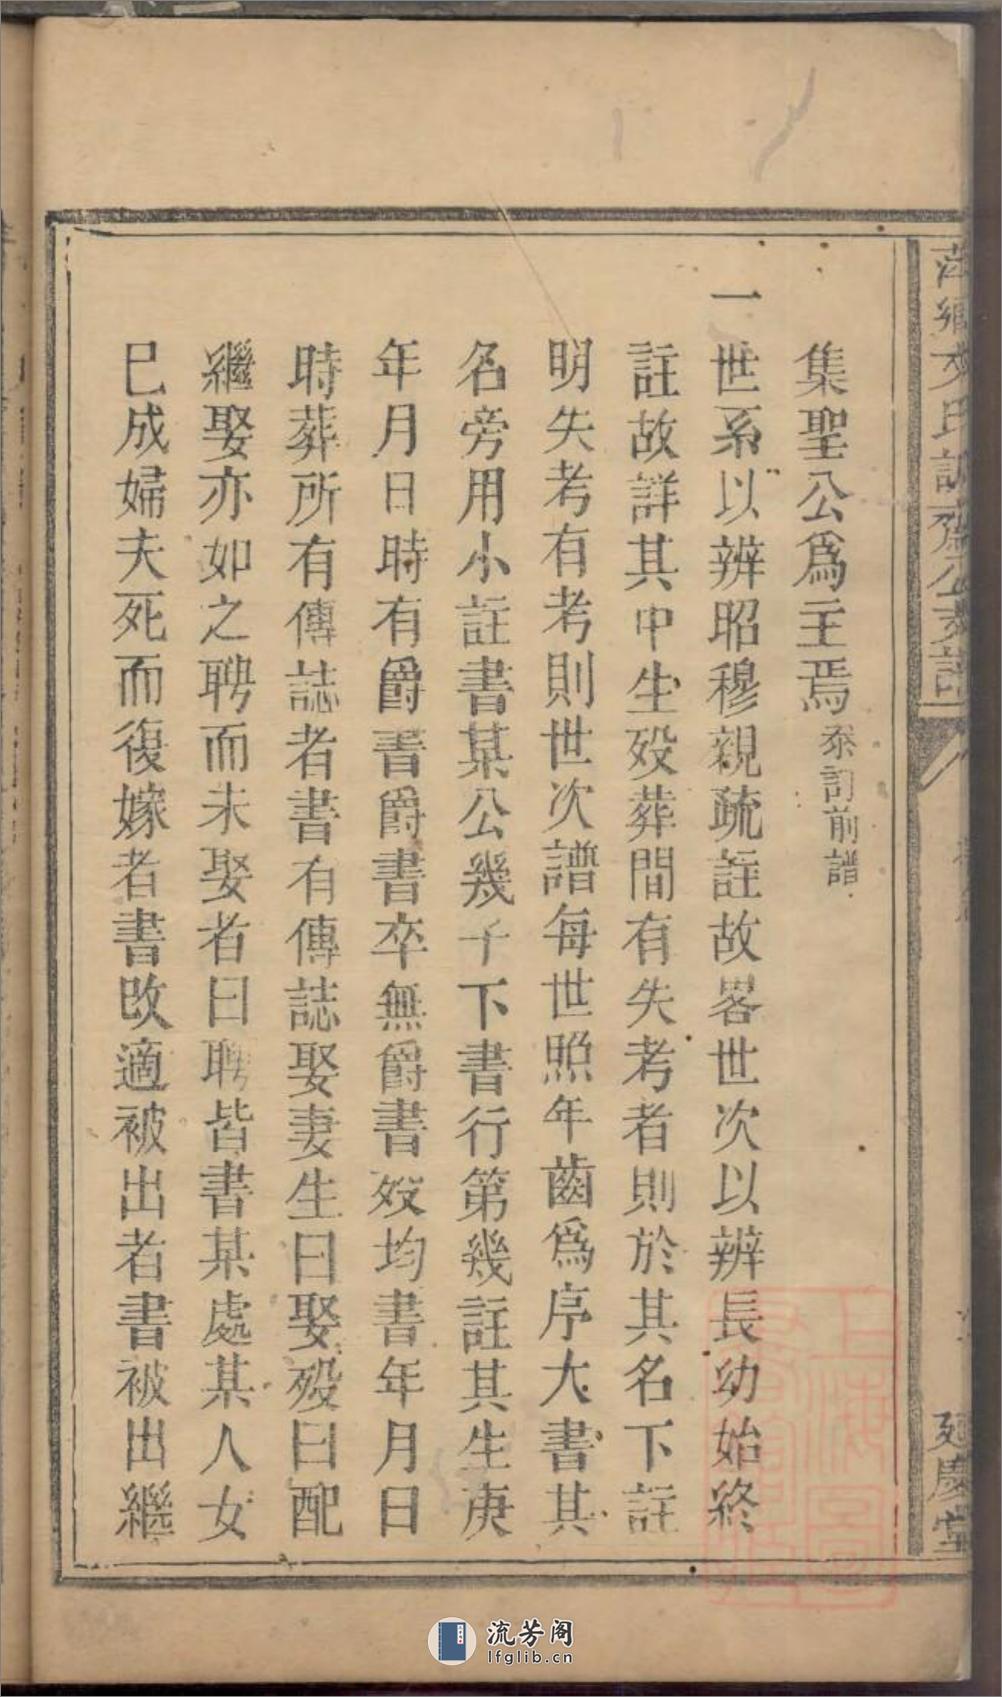 集聖公爲主焉叅訂前譜
一世系以辨昭穆親疏註故畧世次以辨長幼始終
註故詳其中生殁葬間有失考者則於其名下註
明失考有考則世次譜每世照年齒爲序大書其
名旁用小註書某公幾子下書行第幾註其生庚
年月日時有爵書爵書卒無爵書歿均書年月日
時葬所有傳誌者書有傳誌娶妻生曰娶殁曰配
繼娶亦如之聘而未娶者曰聘皆書某處某人女
已成婦夫死而復嫁者書改適被出者書被出繼
萍鄉文氏訓齋公支譜
廷慶堂
上海圖書館藏
流芳阁
lfglib.cn